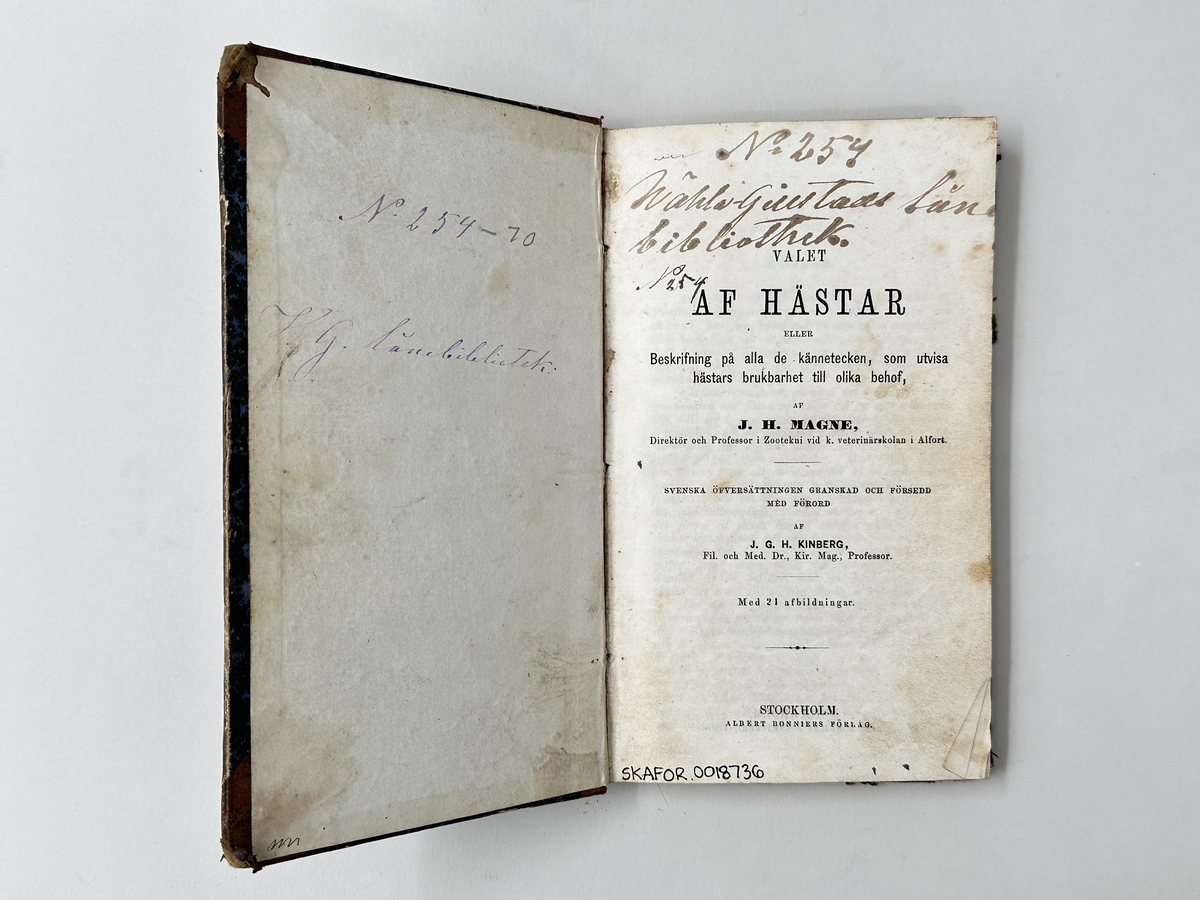 N° 254-70
G. lånebibliotek.
N° 254
lån
bibliothek.
VALET
N° 254
AF HÄSTAR
ELLER
Beskrifning på alla de kännetecken, som utvisa
hästars brukbarhet till olika behof,
AF
J. H. MAGNE,
Direktör och Professor i Zootekni vid k. veterinärskolan i Alfort.
SVENSKA ÖFVERSÄTTNINGEN GRANSKAD OCH FÖRSEDD
MED FÖRORD
AF
J. G. H. KINBERG,
Fil. och Med. Dr., Kir. Mag., Professor.
Med 21 afbildningar.
STOCKHOLM.
ALBERT BONNIERS FÖRLAG.
SKAFOR.0018736